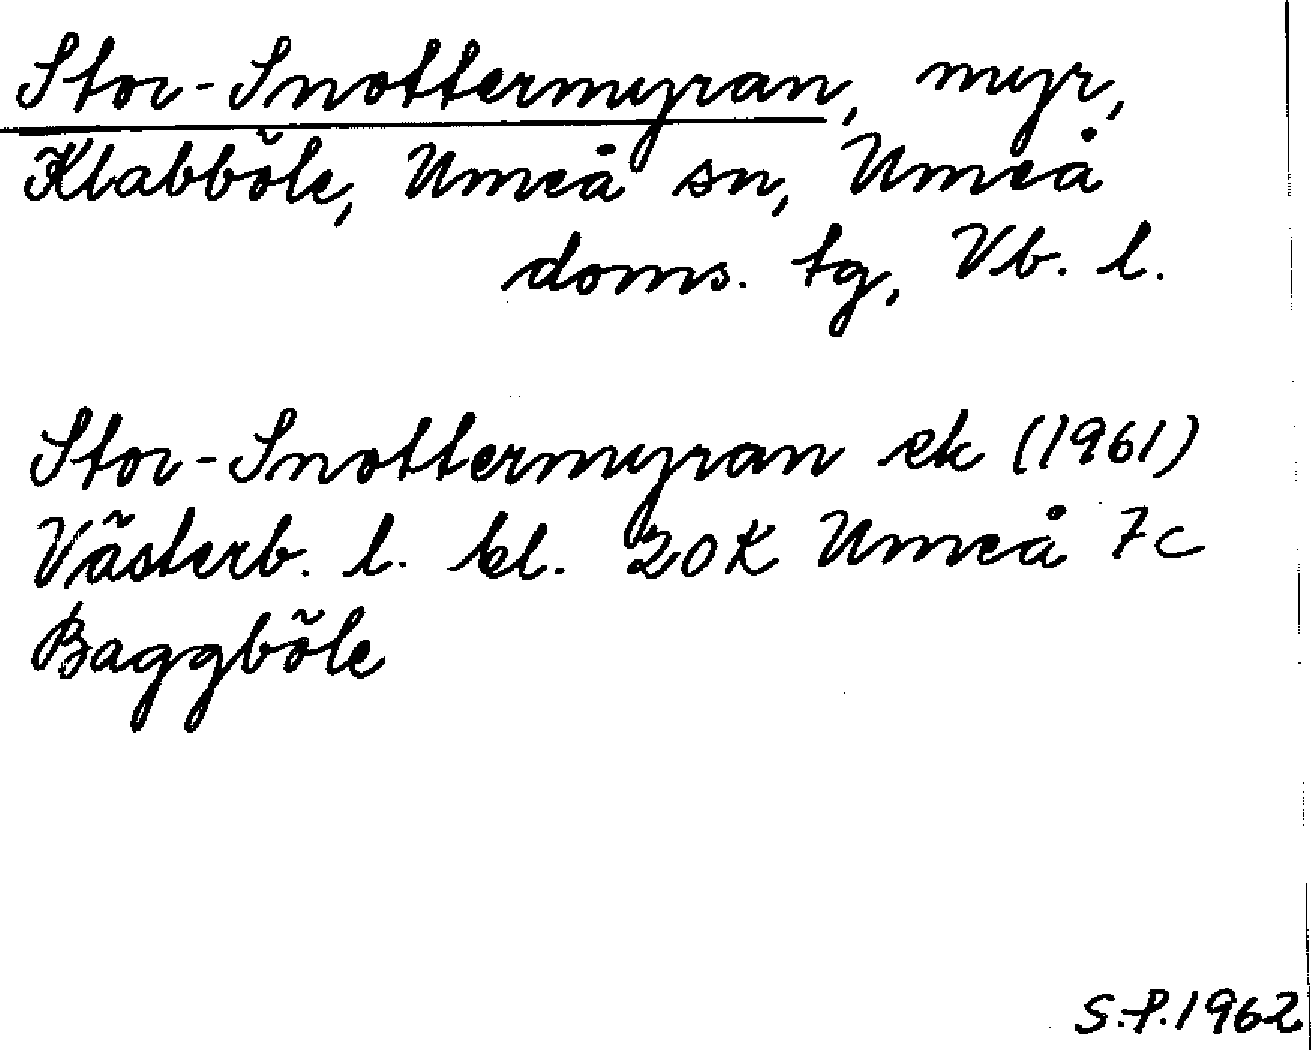 Stor-Snottermyran, myr,
Klabböle, Umeå sn, Umeå
doms. tg, Vb. l.
Stor-Snottermyran ek (1961)
Västerb. l. bl. 20K Umeå 7c
Baggböle
S.P.1962